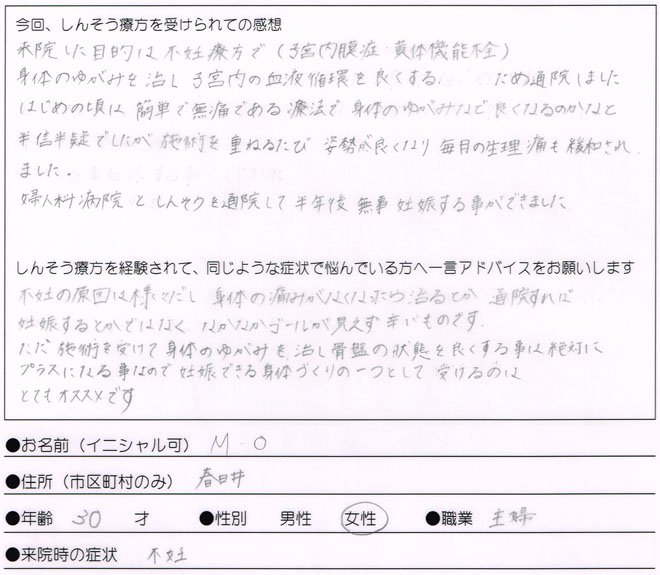 今回、しんそう療方を受けられての感想
来院した目的は不妊療方で(子宮内膜症・黄体機能不全)
身体のゆがみを治し子宮内の血液循環を良くする ため通院しました
はじめの頃は簡単で無痛である療法で身体のゆがみなど良くなるのかなと
半信半疑でしたが施術を重ねるたび 姿勢が良くなり毎月の生理痛も緩和され
ました。
婦人科病院としんそうを通院して半年後 無事妊娠する事ができました
しんそう療方を経験されて、同じような症状で悩んでいる方へ一言アドバイスをお願いします
不妊の原因は様々だし 身体の痛みがなくなれば治るとか 通院すれば
妊娠するとかではなく なかなかゴールが見えず辛いものです。
ただ 施術を受けて身体のゆがみを治し骨盤の状態を良くする事は絶対に
プラスになる事なので 妊娠できる身体づくりの一つとして 受けるのは
とてもオススメです
●お名前(イニシャル可) M・O
●住所(市区町村のみ) 春日井
●年齢 30 才 ●性別 男性 女性 ●職業 主婦
●来院時の症状 不妊